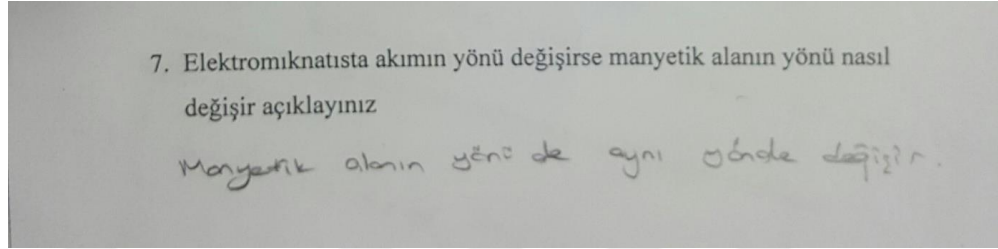 7. Elektromıknatısta akımın yönü değişirse manyetik alanın yönü nasıl
değişir açıklayınız
Manyetik alanın yönü de aynı yönde değişir.